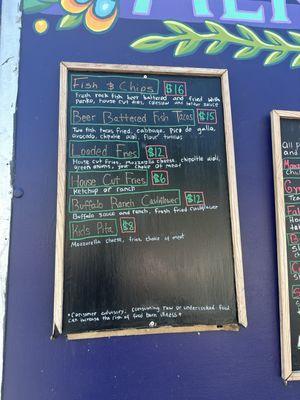 Fish & Chips $16
Fresh rock fish beer battered and fried with
panko, house cut fries, coleslaw and tartar sauce
Beer Battered Fish Tacos $15
Two fish tacos fried, cabbage, pico de gallo,
avocado, chipotle aioli, flour tortillas
Loaded Fries $12
House cut fries, mozzarella cheese, chipotle aioli,
green onions, your choice of meat
House Cut Fries $6
Ketchup or ranch
Buffalo Ranch Cauliflower $12
Buffalo sauce and ranch, fresh fried cauliflower
Kids Pita $8
Mozzarella cheese, choice of meat
*Consumer advisory, consuming raw or undercooked food
can increase the risk of food born illness*
All
and